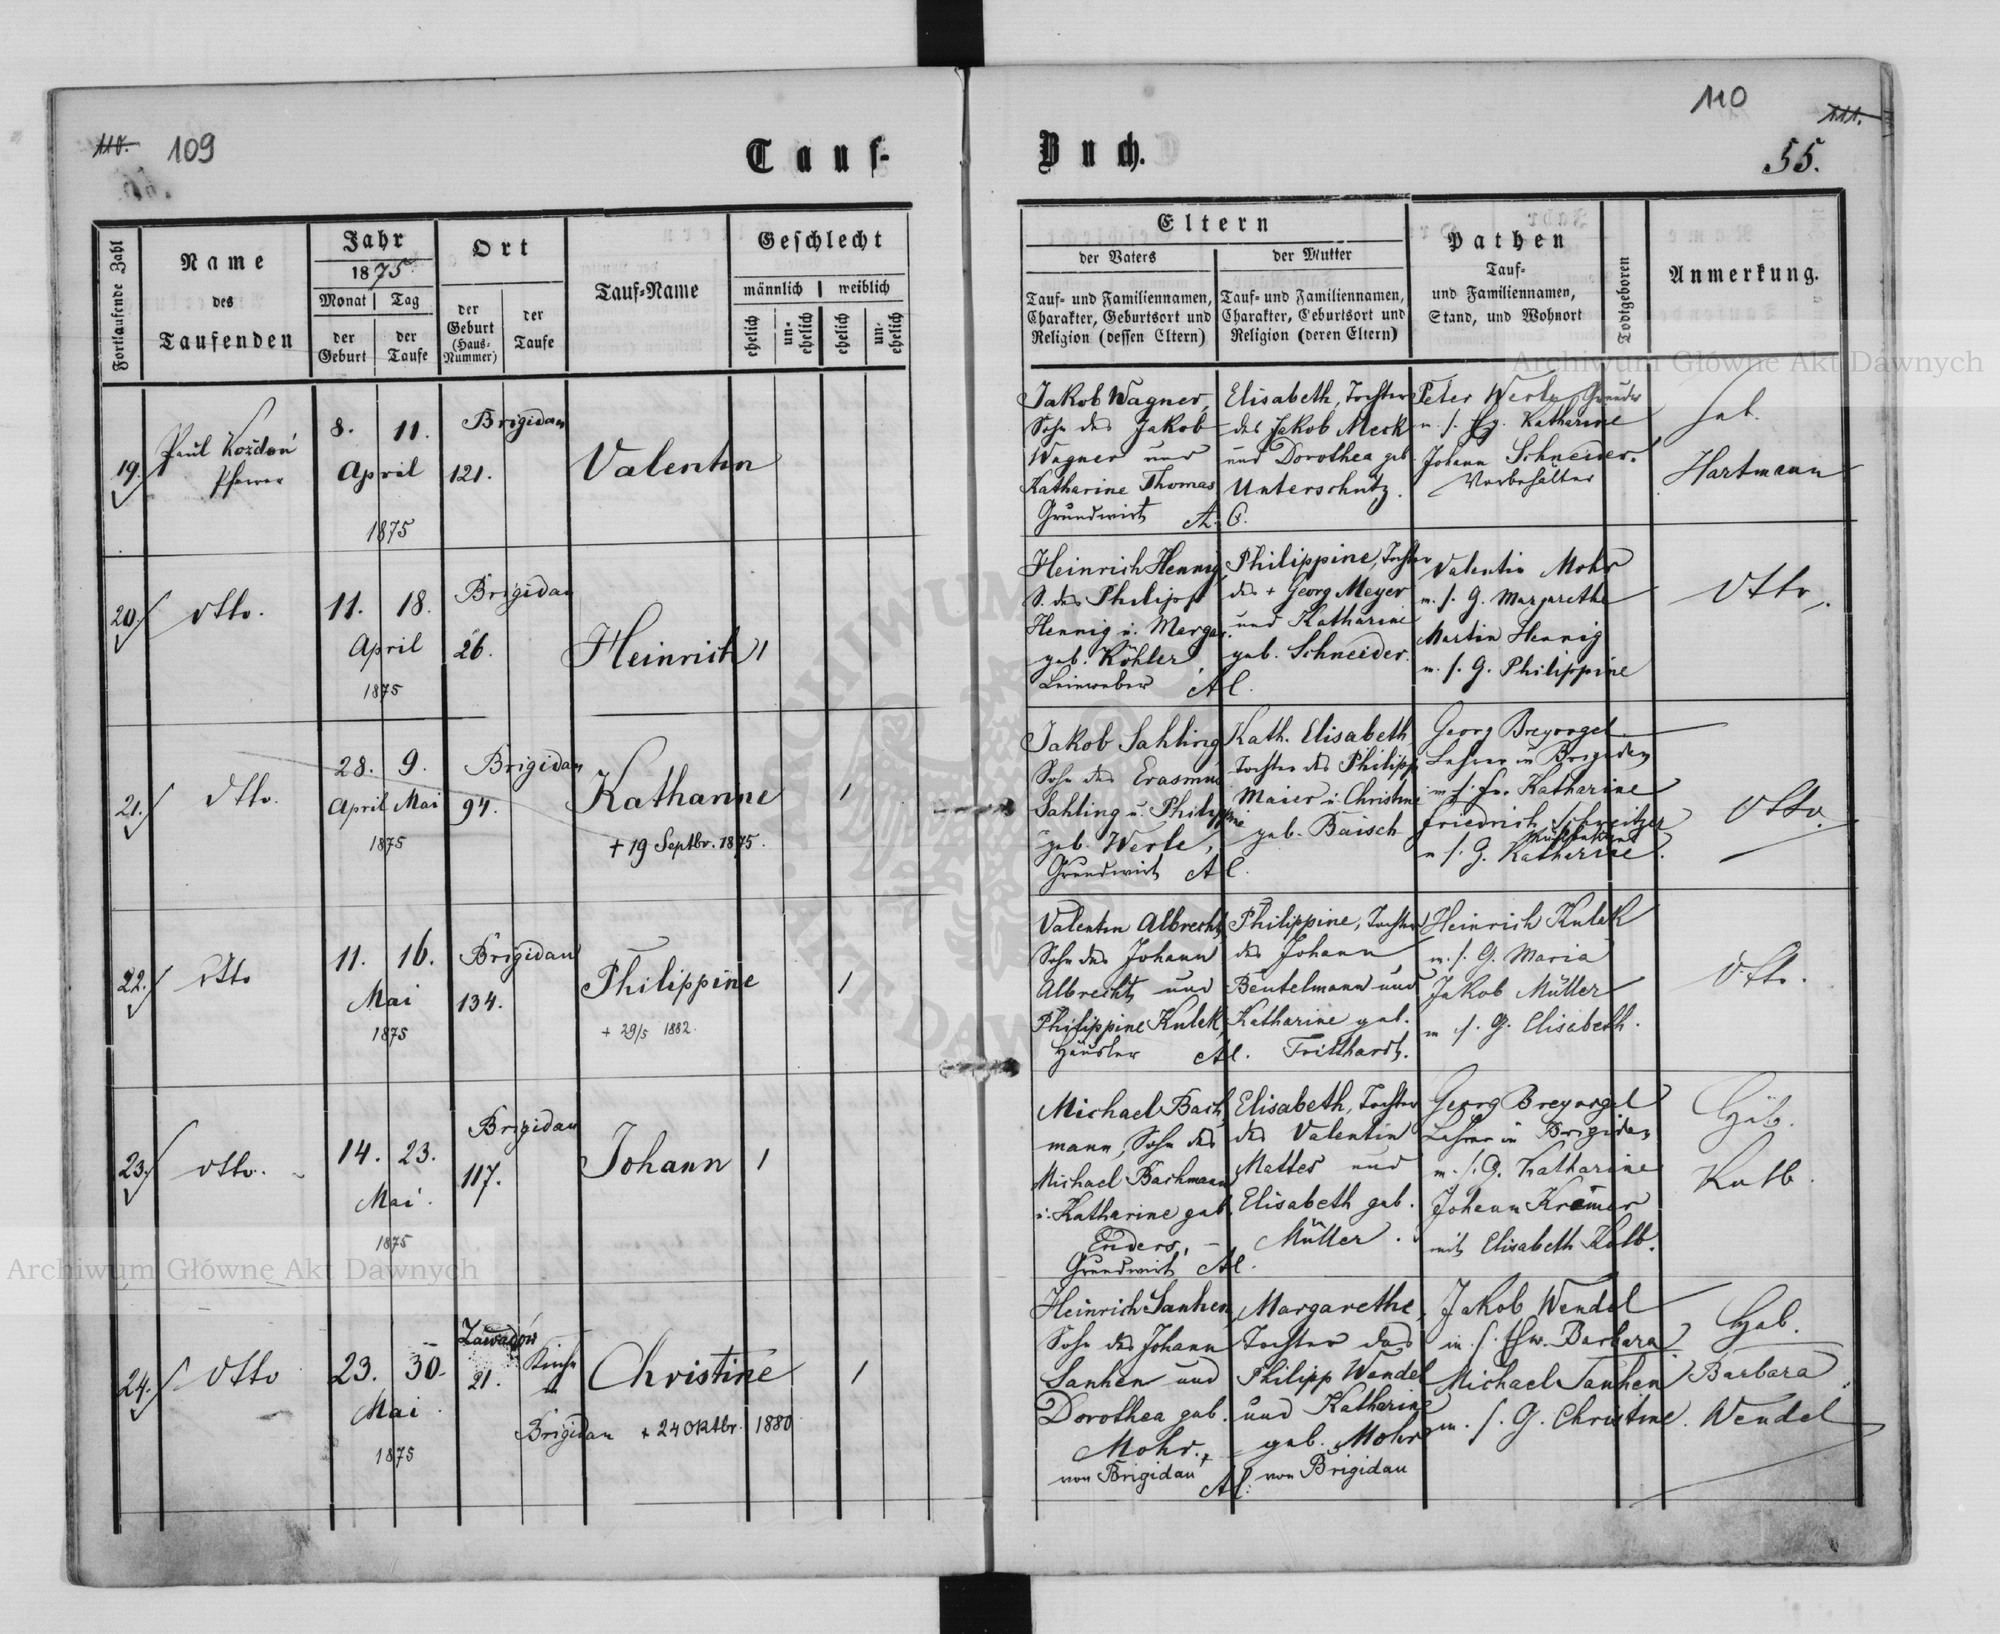 110. 109
Tauf-
Buch.
110
111.
55.
Fortlaufende Zahl
Name
des
Taufenden
Jahr
1875
Monat Tag
der Geburt
der Taufe
Ort
der
Geburt
(Haus-
Nummer)
der
Taufe
Tauf-Name
Geschlecht
männlich weiblich
ehelich
un-
ehelich
ehelich
un-
ehelich
Eltern
der Vaters
der Mutter
Tauf- und Familiennamen,
Charakter, Geburtsort und
Religion (dessen Eltern)
Tauf- und Familiennamen,
Charakter, Geburtsort und
Religion (deren Eltern)
Pathen
Tauf-
und Familiennamen,
Stand, und Wohnort
Todtgeboren
Anmerkung.
Archiwum Główne Akt Dawnych
19.
Paul Kozdoń
Pfarrer
8. 11.
April
1875
Brigidau
121.
Valentin
Jakob Wagner,
Sohn des Jakob
Wagner und
Katharine Thomas
Grundwirt A. C.
Elisabeth, Tochter
des Jakob Meck
und Dorothea geb
Unterschutz.
Peter Werle
Katharine
Johann Schneider.
Vorbehälter
Hartmann
20.
dtto.
11. 18.
April
1875
Brigidau
26.
Heinrich 1
Heinrich Hennig,
S. des Philipp
Hennig u. Margar.
geb. Köhler,
Leinweber A C.
Philippine, Tochter
des + Georg Meyer
und Katharine
geb. Schneider.
Valentin Mohr
m. s. G. Margarethe
Martin Hennig
m. s. G. Philippine
dtto.
21.
dtto.
28. 9.
April Mai
1875
Brigidau
94.
Katharine 1
+ 19 Septbr. 1875.
Jakob Sahling
Sohn des Erasmus
Sahling u. Philippine
geb. Werle,
Grundwirt A C.
Kath. Elisabeth
Tochter des Philipp
Maier u. Christine
geb. Baisch
Georg Breyvogel
Lehrer in Brigidau
m. s. Fr. Katharine
Friedrich Schweitzer
m. s. G. Katharine.
dtto.
22.
dtto
11. 16.
Mai
1875
Brigidau
134.
Philippine 1
+ 29/5 1882.
Valentin Albrecht,
Sohn des Johann
Albrecht und
Philippine Kulek,
Häusler A C.
Philippine, Tochter
des Johann
Beutelmann und
Katharine geb.
Tritthardt.
Heinrich Kulek
m. s. G. Maria
Jakob Müller
m. s. G. Elisabeth.
dtto.
23.
dtto.
14. 23.
Mai.
1875
Brigidau
117.
Johann 1
Michael Bach
mann, Sohn des
Michael Bachmann
u. Katharine geb.
Enders,
Grundwirt A C.
Elisabeth, Tochter
des Valentin
Mattes und
Elisabeth geb.
Müller.
Georg Breyvogel
Lehrer in Brigidau
m. s. G. Katharine
Johann Krämer
mit Elisabeth Kolb.
Heb.
Kolb.
Archiwum Główne Akt Dawnych
24.
dtto
23. 30.
Mai.
1875
Zawadów
21.
Kirche
in
Brigidau
Christine 1
+ 24 Oktbr. 1880
Heinrich Sanhen,
Sohn des Johann
Sanhen und
Dorothea geb.
Mohr.
von Brigidau A C.
Margarethe,
Tochter des
Philipp Wendel
und Katharine
geb. Mohr
von Brigidau
Jakob Wendel
m. s. Ehw. Barbara
Michael Sanhen
m. s. G. Christine.
Heb.
Barbara
Wendel